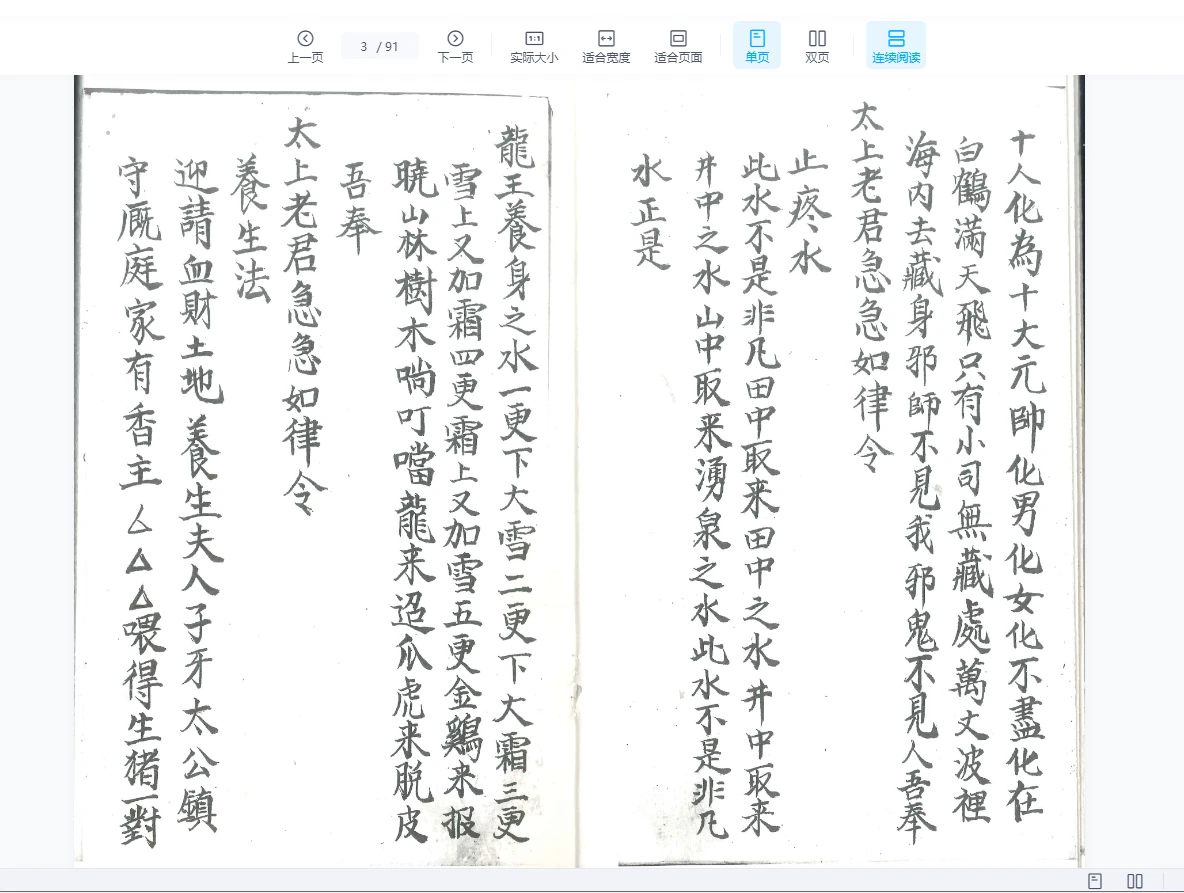 上一页
3 / 91
下一页
1:1
实际大小
适合宽度
适合页面
单页
双页
连续阅读
十人化為十大元帥化男化女化不盡化在
白鶴滿天飛只有小司無藏處萬丈波裡
海內去藏身邪師不見我邪鬼不見人吾奉
太上老君急急如律令
止疼水
此水不是非凡田中取来田中之水井中取来
井中之水山中取来湧泉之水此水不是非凡
水正是
龍王養身之水一更下大雪二更下大霜三更
雪上又加霜四更霜上又加雪五更金鷄来报
曉山林樹木喃叮噹龍来迢爪虎来脱皮
吾奉
太上老君急急如律令
養生法
迎請血財土地養生夫人子牙太公鎮
守厩庭家有香主△△△喂得生猪一對